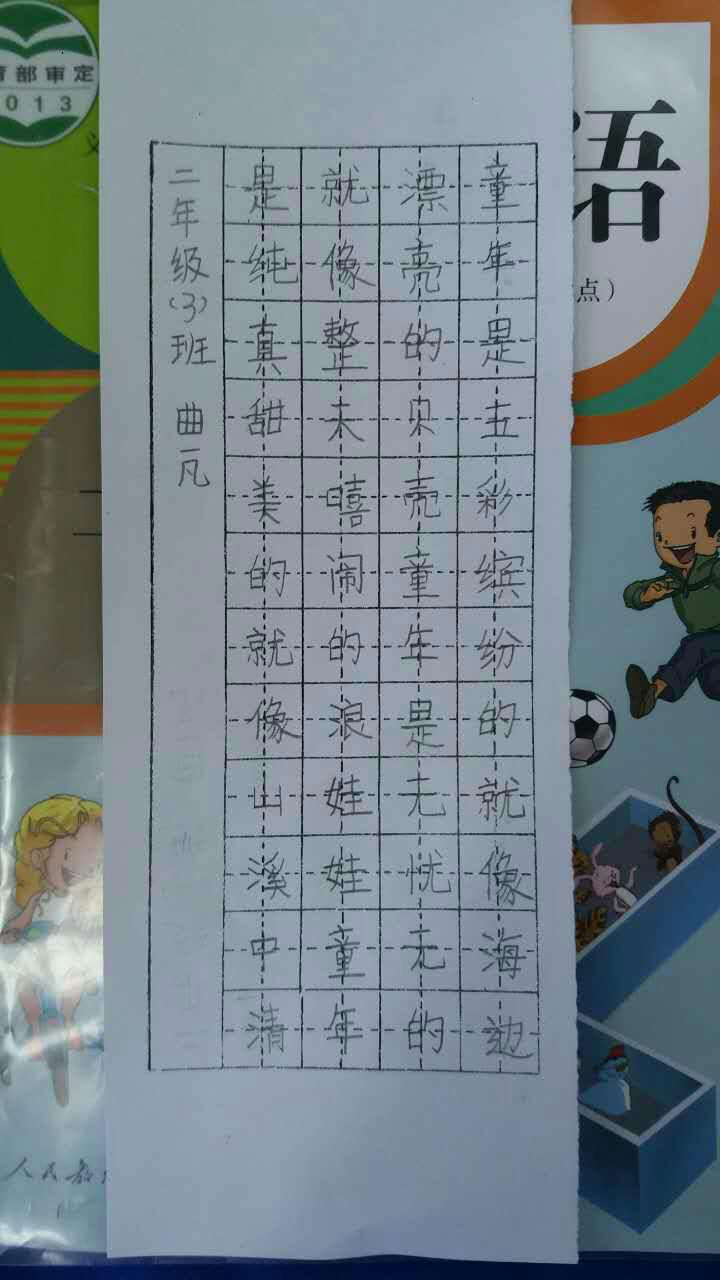 童年是五彩缤纷的就像海边
漂亮的贝壳童年是无忧无的
就像整天嘻闹的浪娃娃童年
是纯真甜美的就像山溪中清
二年级(3)班 曲一凡
语
点）
育部审定
2013
人民教